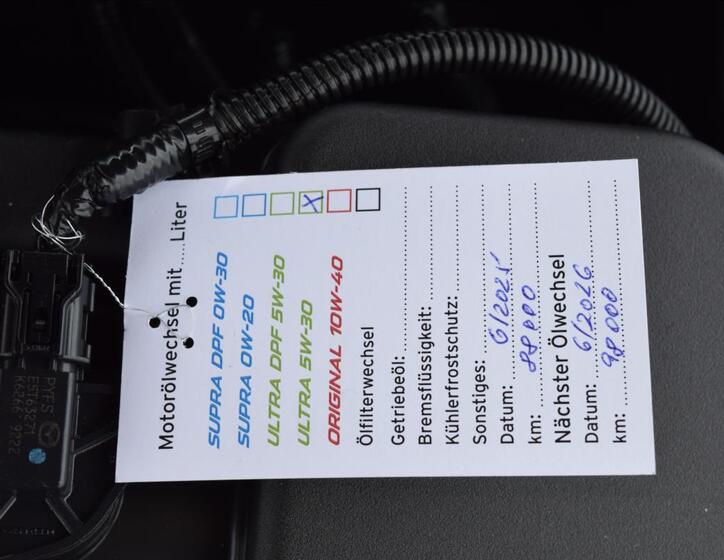 Motorölwechsel mit.....Liter
SUPRA DPF 0W-30
SUPRA 0W-20
ULTRA DPF 5W-30
ULTRA 5W-30 X
ORIGINAL 10W-40
Ölfilterwechsel
Getriebeöl:
Bremsflüssigkeit:
Kühlerfrostschutz:
Sonstiges:
Datum: 6/2025
km: 88 000
Nächster Ölwechsel
Datum: 6/2026
km: 98 000
PYFS
E5T63271
K6266 9222